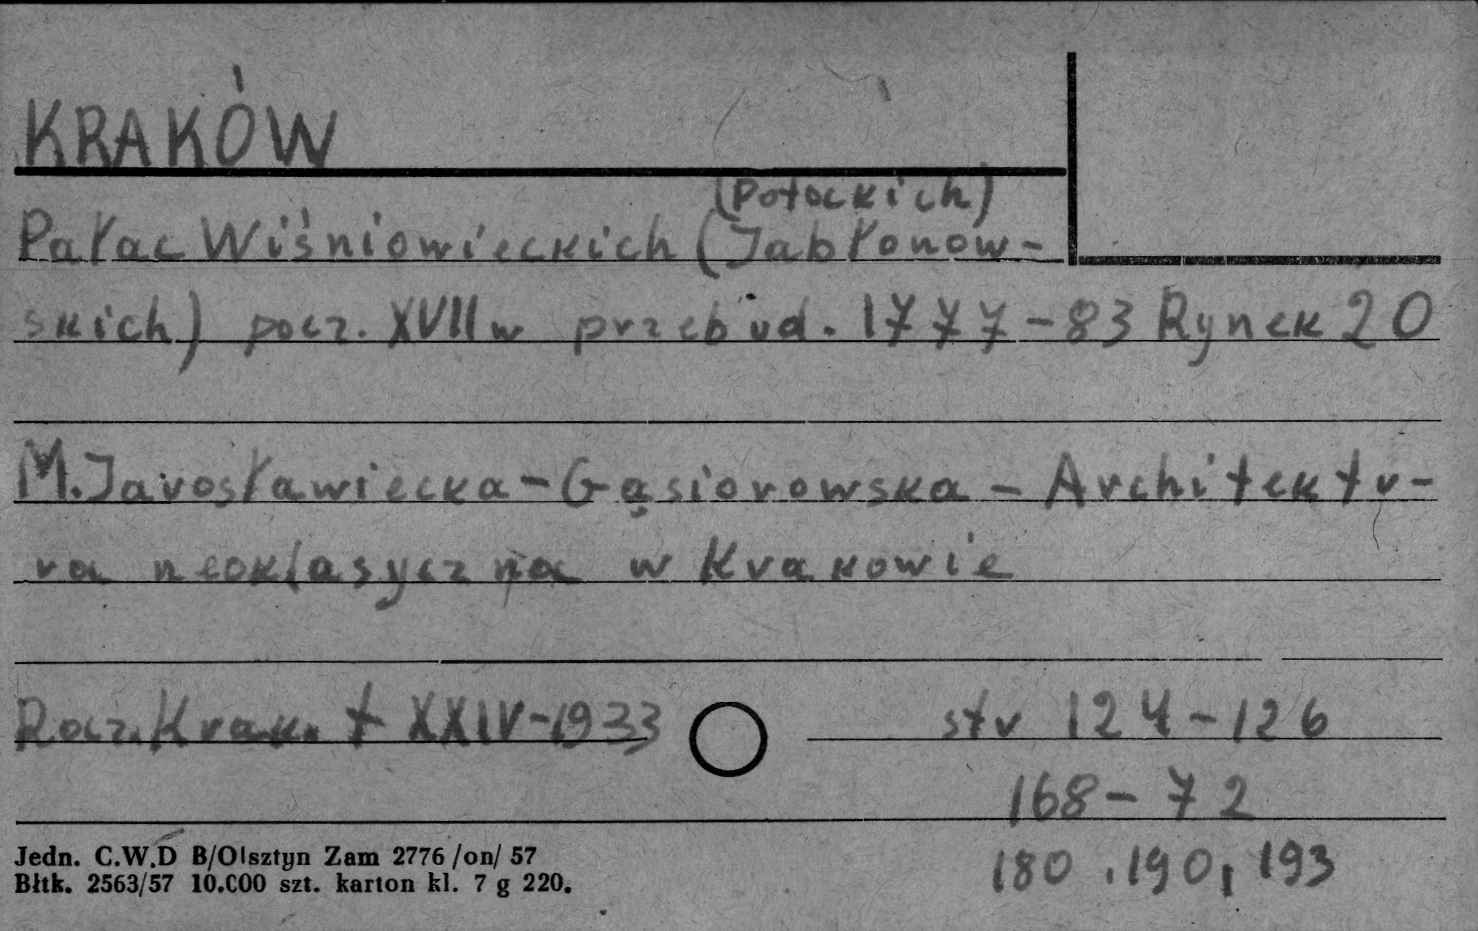 KRAKÓW
(Potockich)
Pałac Wiśniowieckich (Jabłonow-
skich) pocz. XVII w przebud. 1777-83 Rynek 20
M. Jarosławiecka-Gąsiorowska - Architektu-
ra neoklasyczna w Krakowie
Rocz. Krak. t XXIV-1933 str 124-126
168-72
180, 190, 193
Jedn. C.W.D B/Olsztyn Zam 2776/on/57
Błtk. 2563/57 10.000 szt. karton kl. 7 g 220.